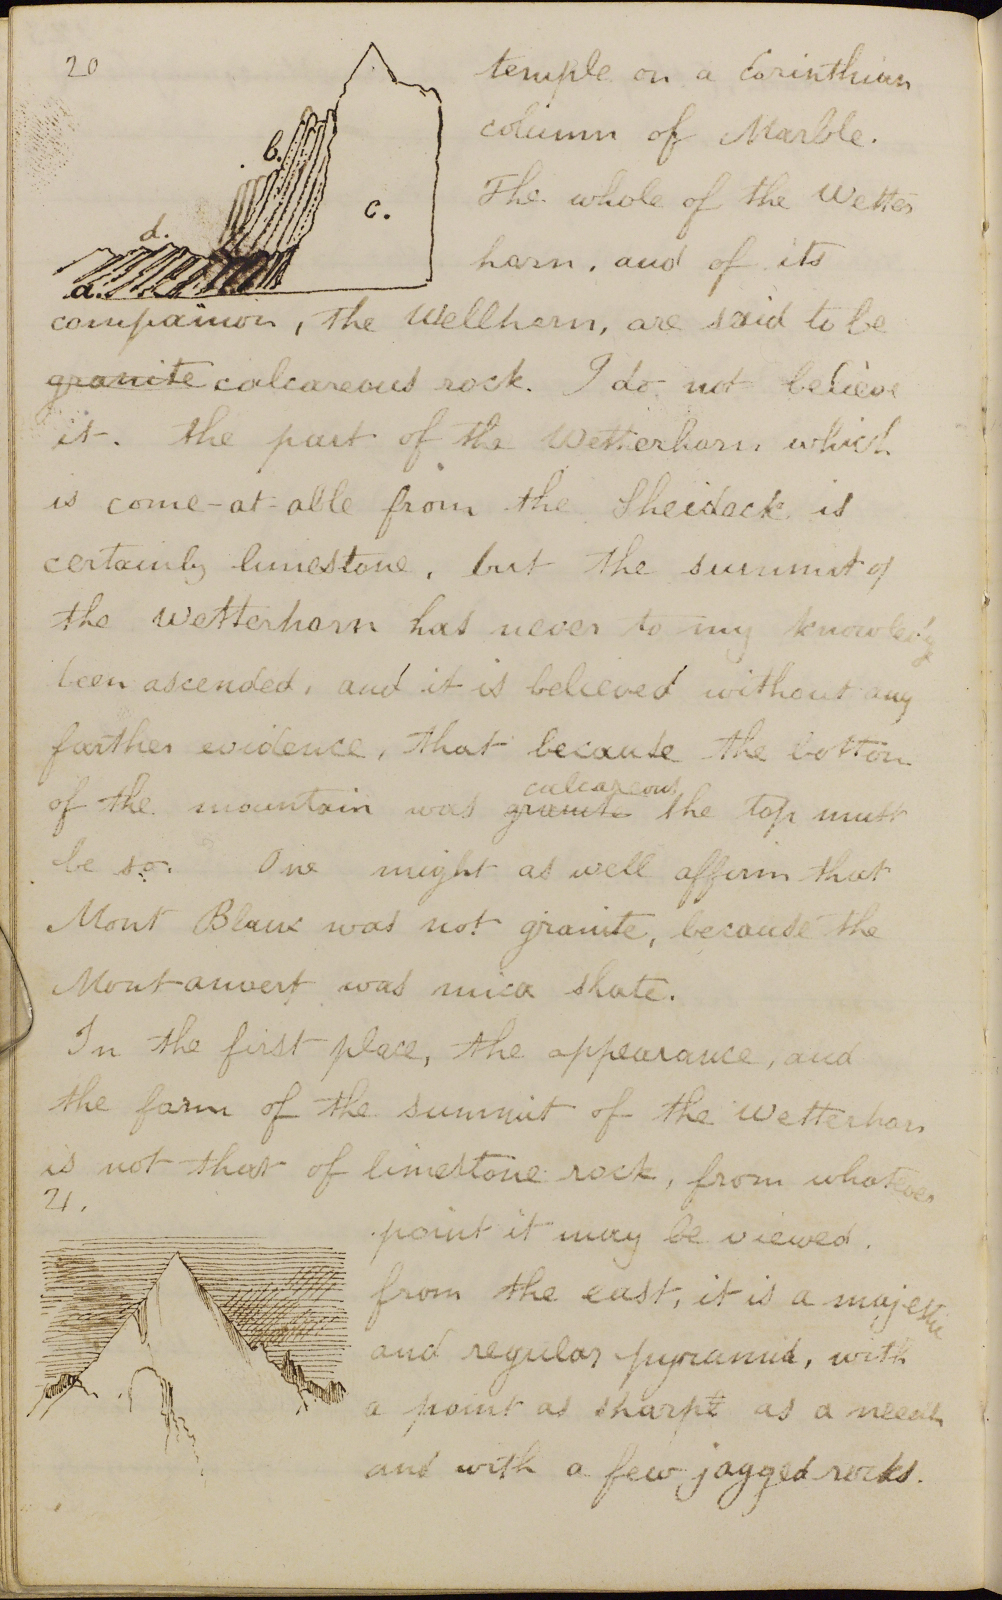 20
b.
c.
d.
a.
temple on a Corinthian
column of Marble.
The whole of the Wetter
horn, and of its
compainion, the Wellhorn, are said to be
granite calcareous rock. I do not believe
it. the part of the Wetterhorn which
is come-at-able from the Sheideck is
certainly limestone, but the summit of
the Wetterhorn has never to my knowledg
been ascended, and it is believed without any
farther evidence, that because the bottom
calcareous
of the mountain was granite the top must
be so. One might as well affirm that
Mont Blanc was not granite, because the
Montanvert was mica slate.
In the first place, the appearance, and
the form of the summit of the Wetterhorn
is not that of limestone rock, from whatever
21.
point it may be viewed.
from the east, it is a majestic
and regular pyramid, with
a point as sharp as a needle
and with a few jagged rocks.